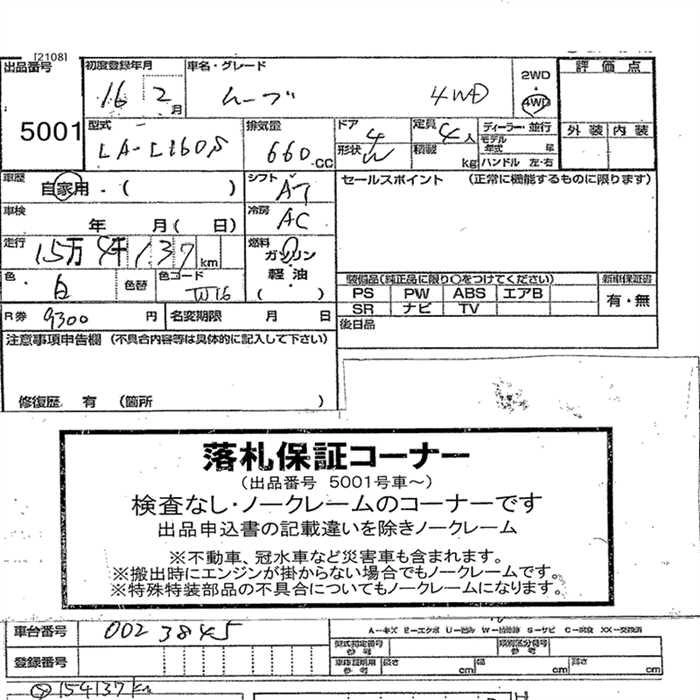 [2108]
出品番号 初度登録年月 車名・グレード 評価点
16 2月 ムーブ 4WD 2WD 4WD
5001 型式 排気量 ドア 4 定員 4人 ディーラー・並行 外装 内装
LA-L160S 660 CC 形状 W 積載 kg モデル年式 年
ハンドル 左・右
車歴 自家用・( ) シフト AT セールスポイント (正常に機能するものに限ります)
車検 年 月( 日) 冷房 AC
走行 15万4千137km 燃料 ガソリン
軽油
色 白 色替 色コード W16 ( ) 装備品(純正品に限り○をつけてください) 新車保証書
PS PW ABS エアB 有・無
R券 9300 円 名変期限 月 日 SR ナビ TV
後日品
注意事項申告欄 (不具合内容等は具体的に記入して下さい)
修復歴 有 (箇所 )
落札保証コーナー
(出品番号 5001号車~)
検査なし・ノークレームのコーナーです
出品申込書の記載違いを除きノークレーム
※不動車、冠水車など災害車も含まれます。
※搬出時にエンジンが掛からない場合でもノークレームです。
※特殊特装部品の不具合についてもノークレームになります。
車台番号 0023845 A-キズ E-エクボ U-凹み W-補修跡 S-サビ C-腐食 XX-交換済
型式指定番号 参考 類別区分番号 参考
登録番号 車庫証明用 参考 長さ cm 幅 cm 高さ cm
154137km